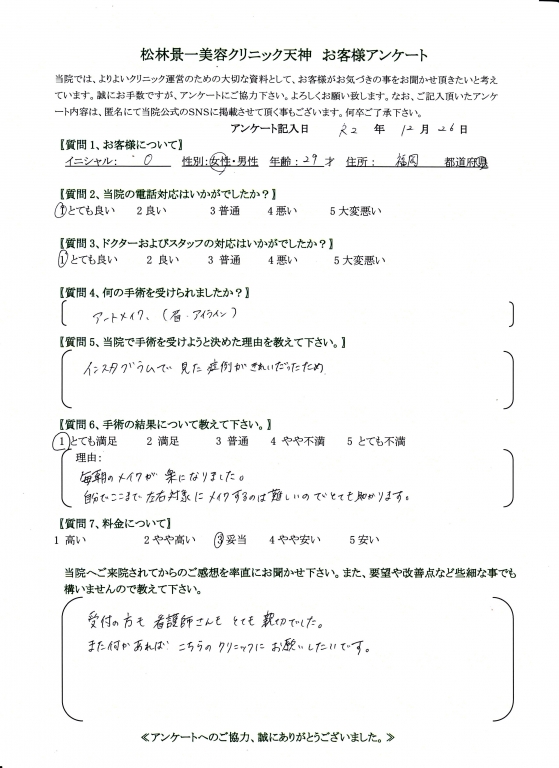 松林景一美容クリニック天神　お客様アンケート
当院では、よりよいクリニック運営のための大切な資料として、お客様がお気づきの事をお聞かせ頂きたいと考え
ています。誠にお手数ですが、アンケートにご協力下さい。よろしくお願い致します。なお、ご記入頂いたアンケ
ート内容は、匿名にて当院公式のSNSに掲載させて頂く事もございます。何卒ご了承下さい。
アンケート記入日　R2　年　12　月　26　日
【質問1、お客様について】
イニシャル：　O　性別：女性・男性　年齢：29才　住所：　福岡　都道府県
【質問2、当院の電話対応はいかがでしたか？】
1とても良い　2良い　3普通　4悪い　5大変悪い
【質問3、ドクターおよびスタッフの対応はいかがでしたか？】
1とても良い　2 良い　3 普通　4悪い　5大変悪い
【質問4、何の手術を受けられましたか？】
アートメイク、（眉・アイライン）
【質問5、当院で手術を受けようと決めた理由を教えて下さい。】
インスタグラムで見た症例がきれいだったため
【質問6、手術の結果について教えて下さい。】
1とても満足　2 満足　3 普通　4 やや不満　5 とても不満
理由：
毎朝のメイクが楽になりました。
自分でここまで左右対象にメイクするのは難しいのでとても助かります。
【質問7、料金について】
1 高い　2やや高い　3妥当　4やや安い　5安い
当院へご来院されてからのご感想を率直にお聞かせ下さい。また、要望や改善点など些細な事でも
構いませんので教えて下さい。
受付の方も看護師さんもとても親切でした。
また何かあればこちらのクリニックにお願いしたいです。
≪アンケートへのご協力、誠にありがとうございました。≫